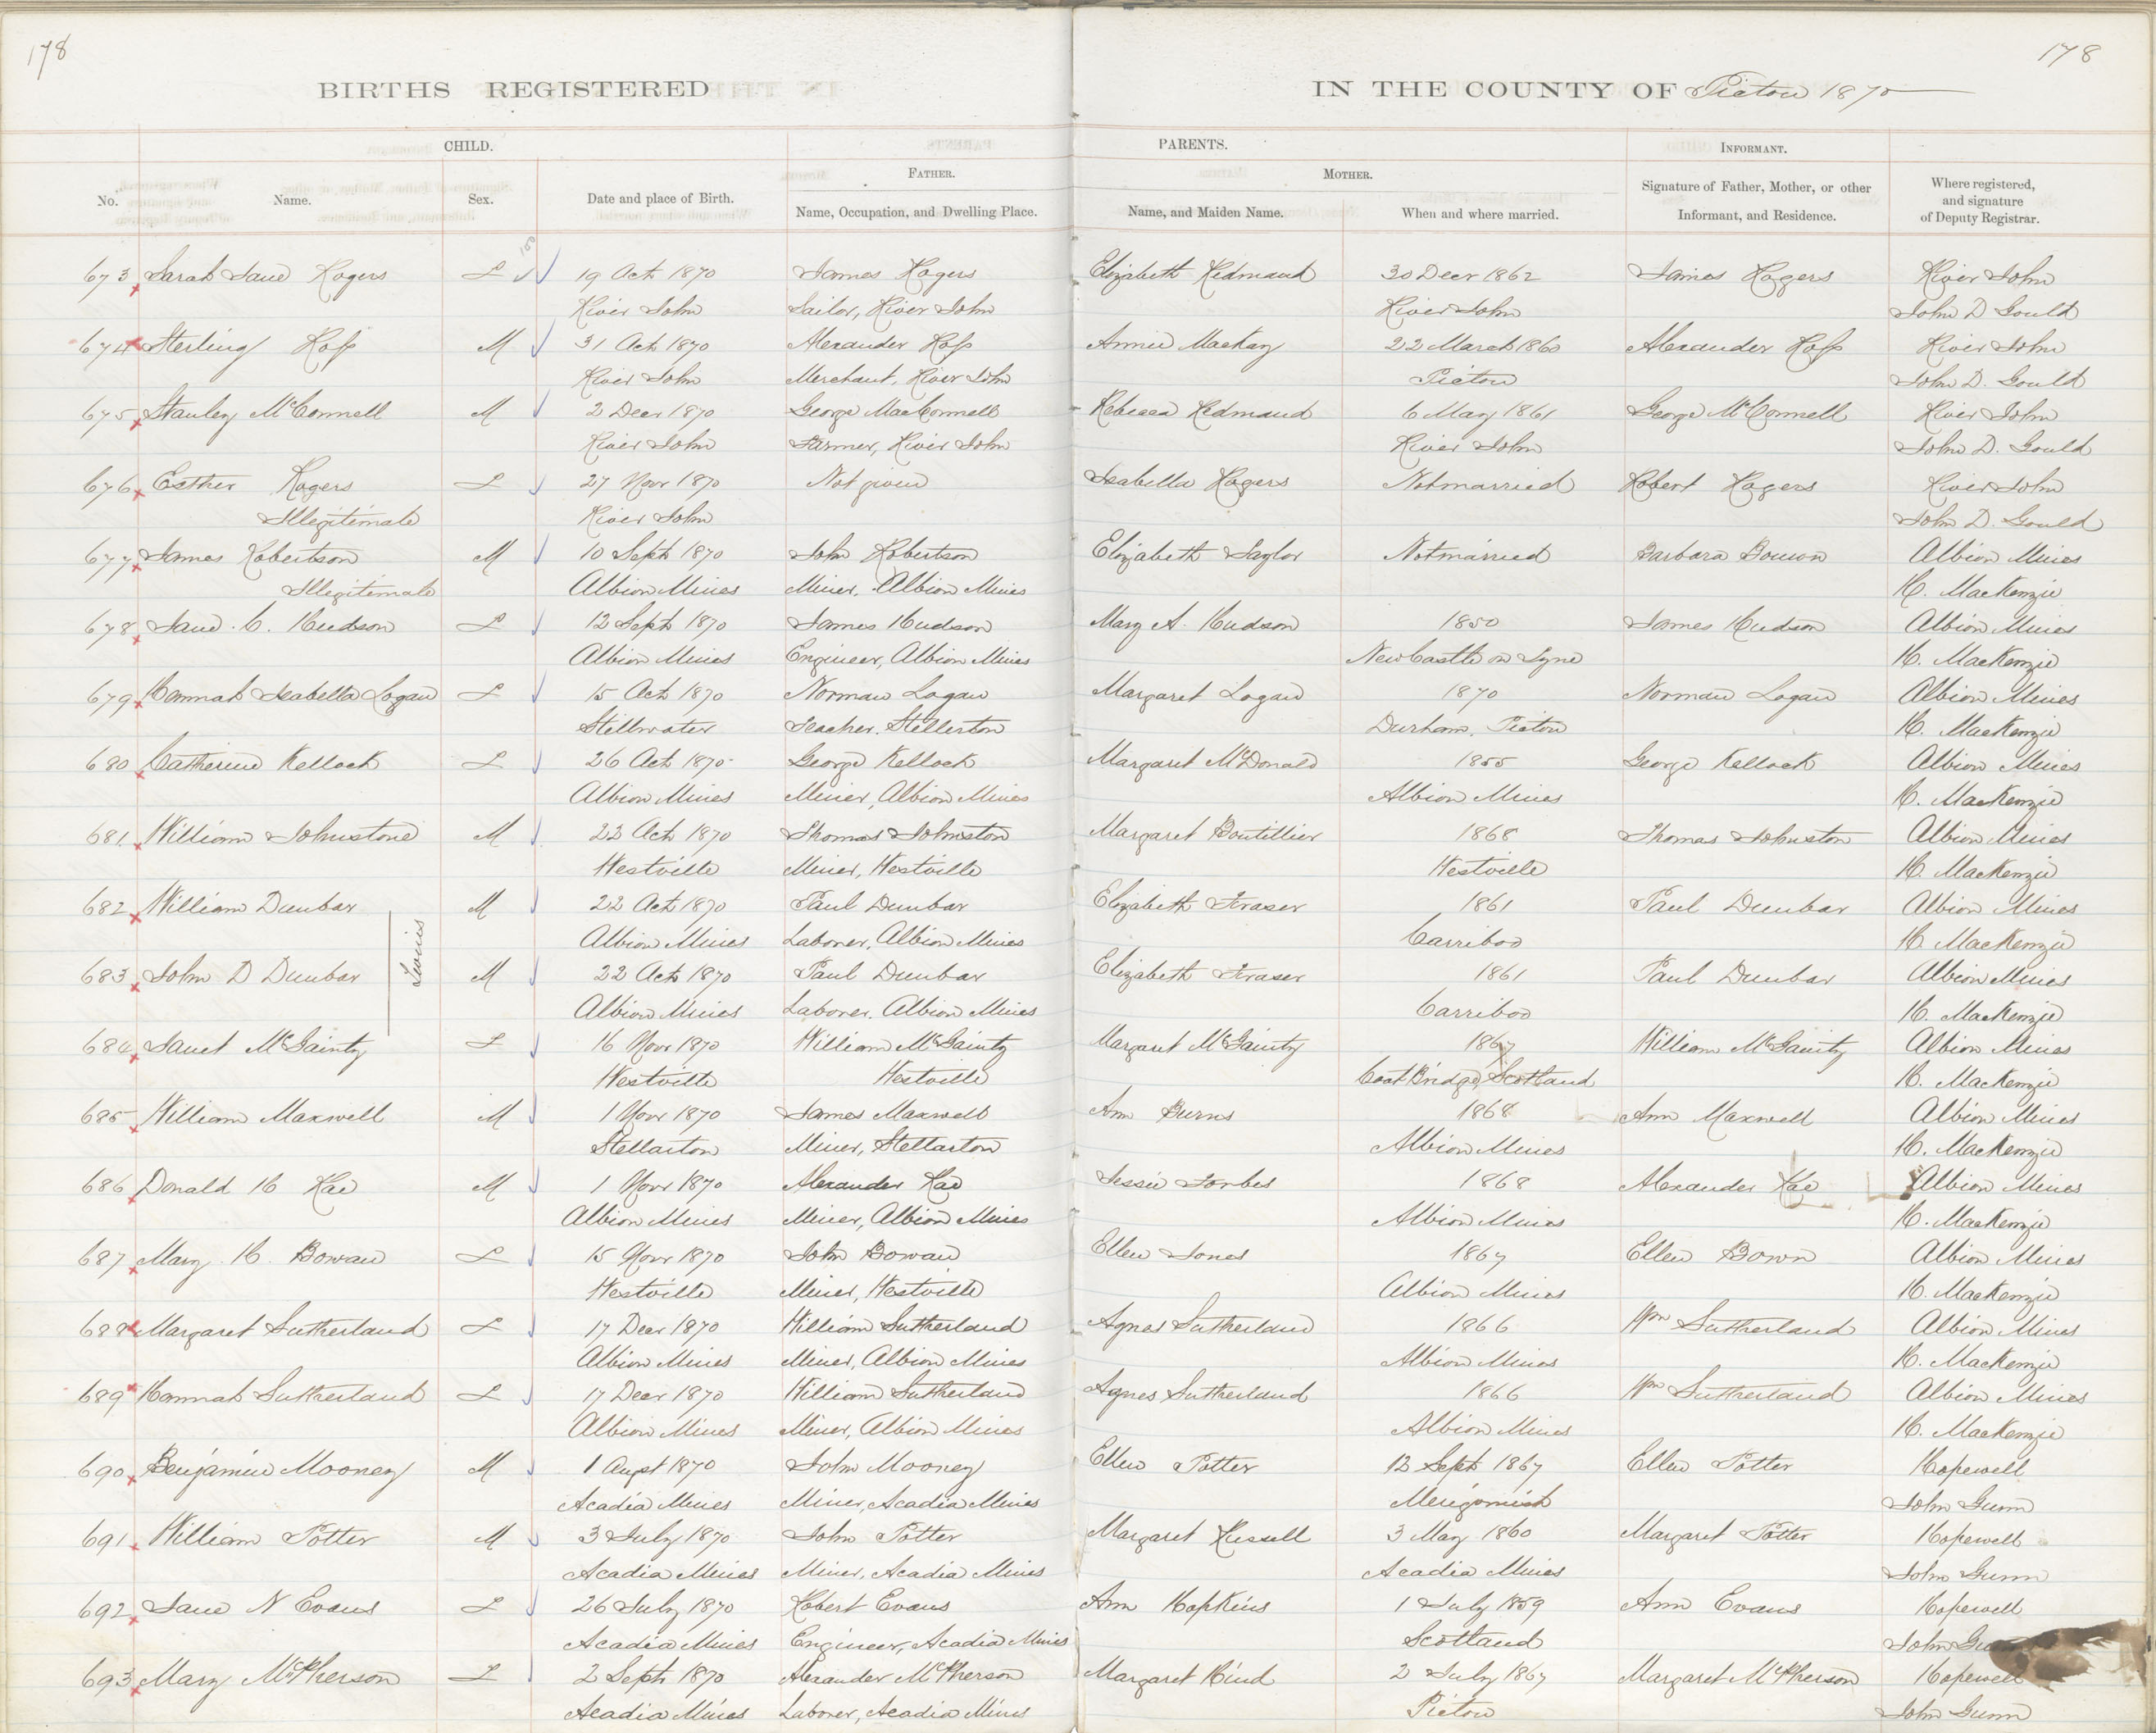 178
178
BIRTHS REGISTERED
IN THE COUNTY OF Pictou 1870
CHILD.
PARENTS.
INFORMANT.
FATHER.
MOTHER.
No.
Name.
Sex.
Date and place of Birth.
Name, Occupation, and Dwelling Place.
Name, and Maiden Name.
When and where married.
Signature of Father, Mother, or other
Informant, and Residence.
Where registered,
and signature
of Deputy Registrar.
673 Sarah Jane Rogers F 19 Oct 1870 James Rogers Elizabeth Redmand 30 Decr 1862 James Rogers River John
River John Sailor, River John River John John D Gould
674 Sterling Ross M 31 Oct 1870 Alexander Ross Annie MacKay 22 March 1860 Alexander Ross River John
River John Merchant, River John Pictou John D. Gould
675 Stanley McConnell M 2 Decr 1870 George MacConnell Rebecca Redmand 6 May 1861 George McConnell River John
River John Farmer, River John River John John D. Gould
676 Esther Rogers F 27 Novr 1870 Not given Isabella Rogers Not married Robert Rogers River John
Illegitimate River John John D. Gould
677 James Robertson M 10 Sept 1870 John Robertson Elizabeth Taylor Not married Barbara Albion Mines
Illegitimate Albion Mines Miner. Albion Mines H. MacKenzie
678 Jane. C. Hudson F 12 Sept 1870 James Hudson Mary A. Hudson 1850 James Hudson Albion Mines
Albion Mines Engineer, Albion Mines NewCastle on Tyne H. MacKenzie
679 Hannah Isabella Logan F 15 Oct 1870 Norman Logan Margaret Logan 1870 Norman Logan Albion Mines
Stillwater Teacher. Stellerton Durham. Pictou H. MacKenzie
680 Catherine Kellock F 26 Oct 1870 George Kellock Margaret McDonald 1855 George Kellock Albion Mines
Albion Mines Miner, Albion Mines Albion Mines H. MacKenzie
681 William Johnstone M 22 Oct 1870 Thomas Johnston Margaret Boutillier 1868 Thomas Johnston Albion Mines
Westville Miner, Westville Westville H. MacKenzie
682 William Dunbar M 22 Oct 1870 Paul Dunbar Elizabeth Fraser 1861 Paul Dunbar Albion Mines
Twins
Albion Mines Laborer, Albion Mines Carriboo H. MacKenzie
683 John D Dunbar M 22 Oct 1870 Paul Dunbar Elizabeth Fraser 1861 Paul Dunbar Albion Mines
Albion Mines Laborer. Albion Mines Carriboo H. MacKenzie
684 Janet McGainty F 16 Novr 1870 William McGainty Margaret McGainty 1867 William McGainty Albion Mines
Westville Westville Coat Bridge, Scotland H. MacKenzie
685 William Maxwell M 1 Novr 1870 James Maxwell Ann Burns 1868 Ann Maxwell Albion Mines
Stellarton Miner, Stellarton Albion Mines H. MacKenzie
686 Donald H Rae M 1 Novr 1870 Alexander Rae Jessie Forbes 1868 Alexander Rae Albion Mines
Albion Mines Miner, Albion Mines Albion Mines H. MacKenzie
687 Mary. H. Bowan F 15 Novr 1870 John Bowan Ellen Jones 1867 Ellen Bown Albion Mines
Westville Miner, Westville Albion Mines H. MacKenzie
688 Margaret Sutherland F 17 Decr 1870 William Sutherland Agnes Sutherland 1866 Wm Sutherland Albion Mines
Albion Mines Miner, Albion Mines Albion Mines H. MacKenzie
689 Hannah Sutherland F 17 Decr 1870 William Sutherland Agnes Sutherland 1866 Wm Sutherland Albion Mines
Albion Mines Miner, Albion Mines Albion Mines H. MacKenzie
690 Benjamin Mooney M 1 Augst 1870 John Mooney Ellen Potter 12 Sept 1867 Ellen Potter Hopewell
Acadia Mines Miner, Acadia Mines Merigomish John Gunn
691 William Potter M 3 July 1870 John Potter Margaret Russell 3 May 1860 Margaret Potter Hopewell
Acadia Mines Miner, Acadia Mines Acadia Mines John Gunn
692 Jane N Evans F 26 July 1870 Robert Evans Ann Hopkins 1 July 1859 Ann Evans Hopewell
Acadia Mines Engineer, Acadia Mines Scotland John
693 Mary McPherson F 2 Sept 1870 Alexander McPherson Margaret Hind 2 July 1867 Margaret McPherson Hopewell
Acadia Mines Laborer, Acadia Mines Pictou John Gunn